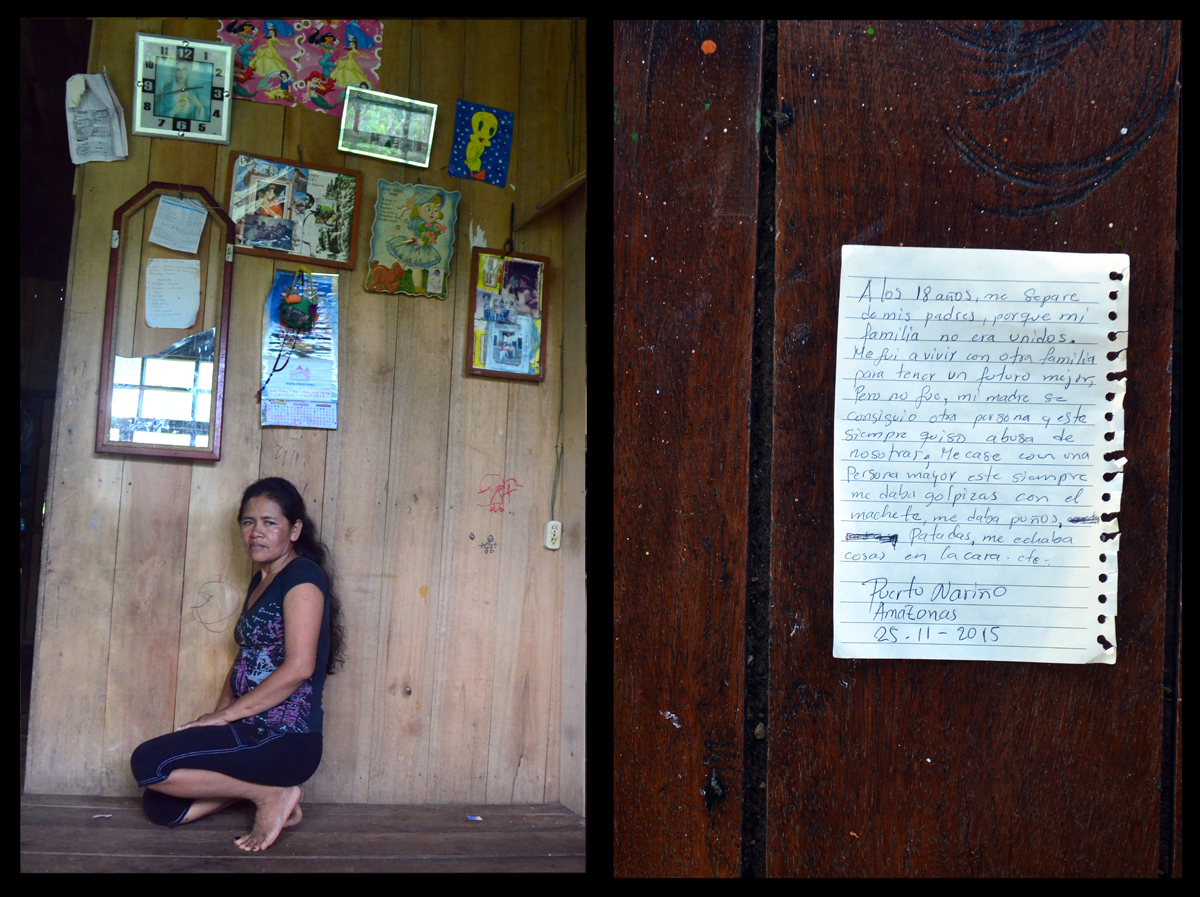 11 12 1
10 2
9 3
8 4
7 6 5
A los 18 años, me separe
de mis padres, porque mi
familia no era unidos.
Me fui a vivir con otra familia
para tener un futuro mejor,
Pero no fue, mi madre se
consiguio otra persona y este
siempre quiso abusa de
nosotras, Me case con una
Persona mayor este siempre
me daba golpizas con el
machete, me daba puños,
Patadas, me echaba
cosas en la cara. cte.
Puerto Nariño
Amazonas
25-11-2015